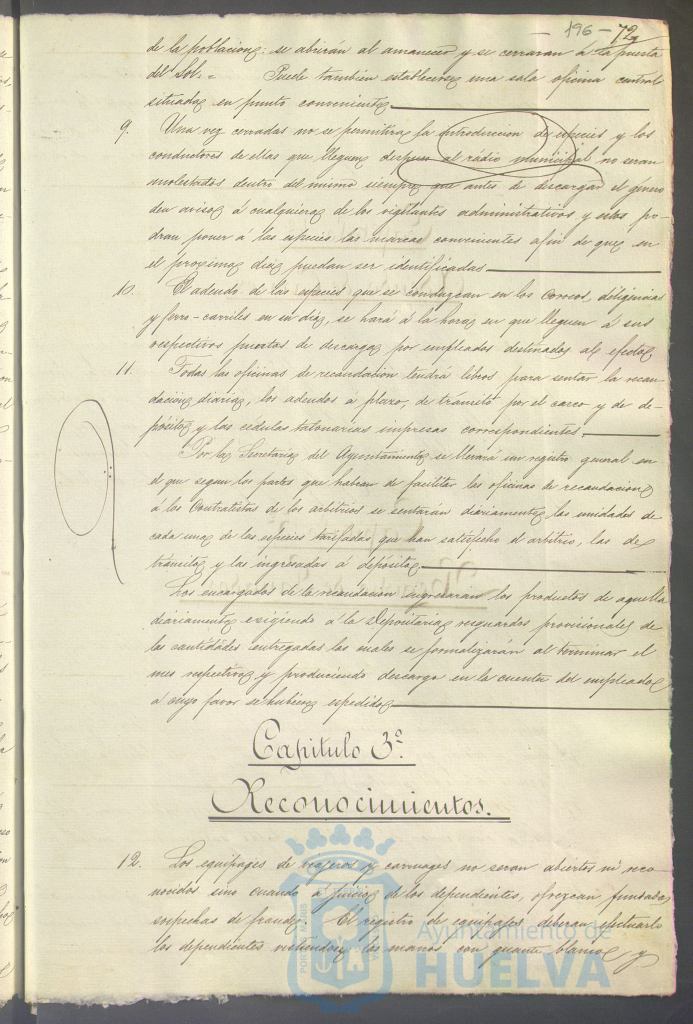 - 196 - 72
de la poblacion: se abrirán al amanecer y se cerraran á la puesta
del Sol. = Puede tambien establecerse una sala oficina central
situada en punto conveniente
9. Una vez cerradas no se permitirá la introduccion de especies y los
conductores de ellas que lleguen despues al rádio municipal no seran
molestados dentro del mismo siempre que antes de descargar el género
den aviso á cualquiera de los vigilantes administrativos y estos po-
dran poner á las especies las marcas convenientes afin de que en
el proximo dia puedan ser identificadas
10. El adeudo de las especies que se conduzcan en los Correos, diligencias
y ferro-carriles en su dia, se hará á la hora en que lleguen á sus
respectivos puertos de descarga por empleados destinados al efecto
11. Todas las oficinas de recaudacion tendrá libros para sentar la recau-
dacion diaria, los adeudos a plazo, de tránsito por el casco y de de-
pósito y las cédulas talonarias impresas correspondientes
Por la Secretaria del Ayuntamiento se llevará un registro general en
el que segun los partes que habran de facilitar las oficinas de recaudacion
á los Contratistas de los arbitrios se sentarán diariamente las unidades de
cada una de las especies tarifadas que han satisfecho el arbitrio, las de
tránsito y las ingresadas á depósito
Los encargados de la recaudacion ingresaran los productos de aquella
diariamente exigiendo á la Depositaria resguardos provisionales de
las cantidades entregadas los cuales se formalizarán al terminar el
mes respectivo y produciendo descargo en la cuenta del empleado
á cuyo favor se hubiere espedido
Capitulo 3º.
Reconocimientos.
12. Los equipages de viajeros y carruages no seran abiertos ni reco-
nocidos sino cuando á juicio de los dependientes, ofrezcan fundadas
sospechas de fraude. El registro de equipages deberan efectuarlo
los dependientes las manos con guante blanco y
Ayuntamiento de
HUELVA